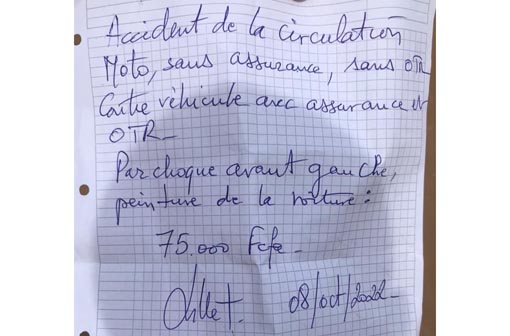 Accident de la circulation
Moto, sans assurance, sans OTR
Contre véhicule avec assurance et
OTR_
Parchoque avant gauche,
peinture de la voiture :
75.000 Fcfa_
08/oct/2022_